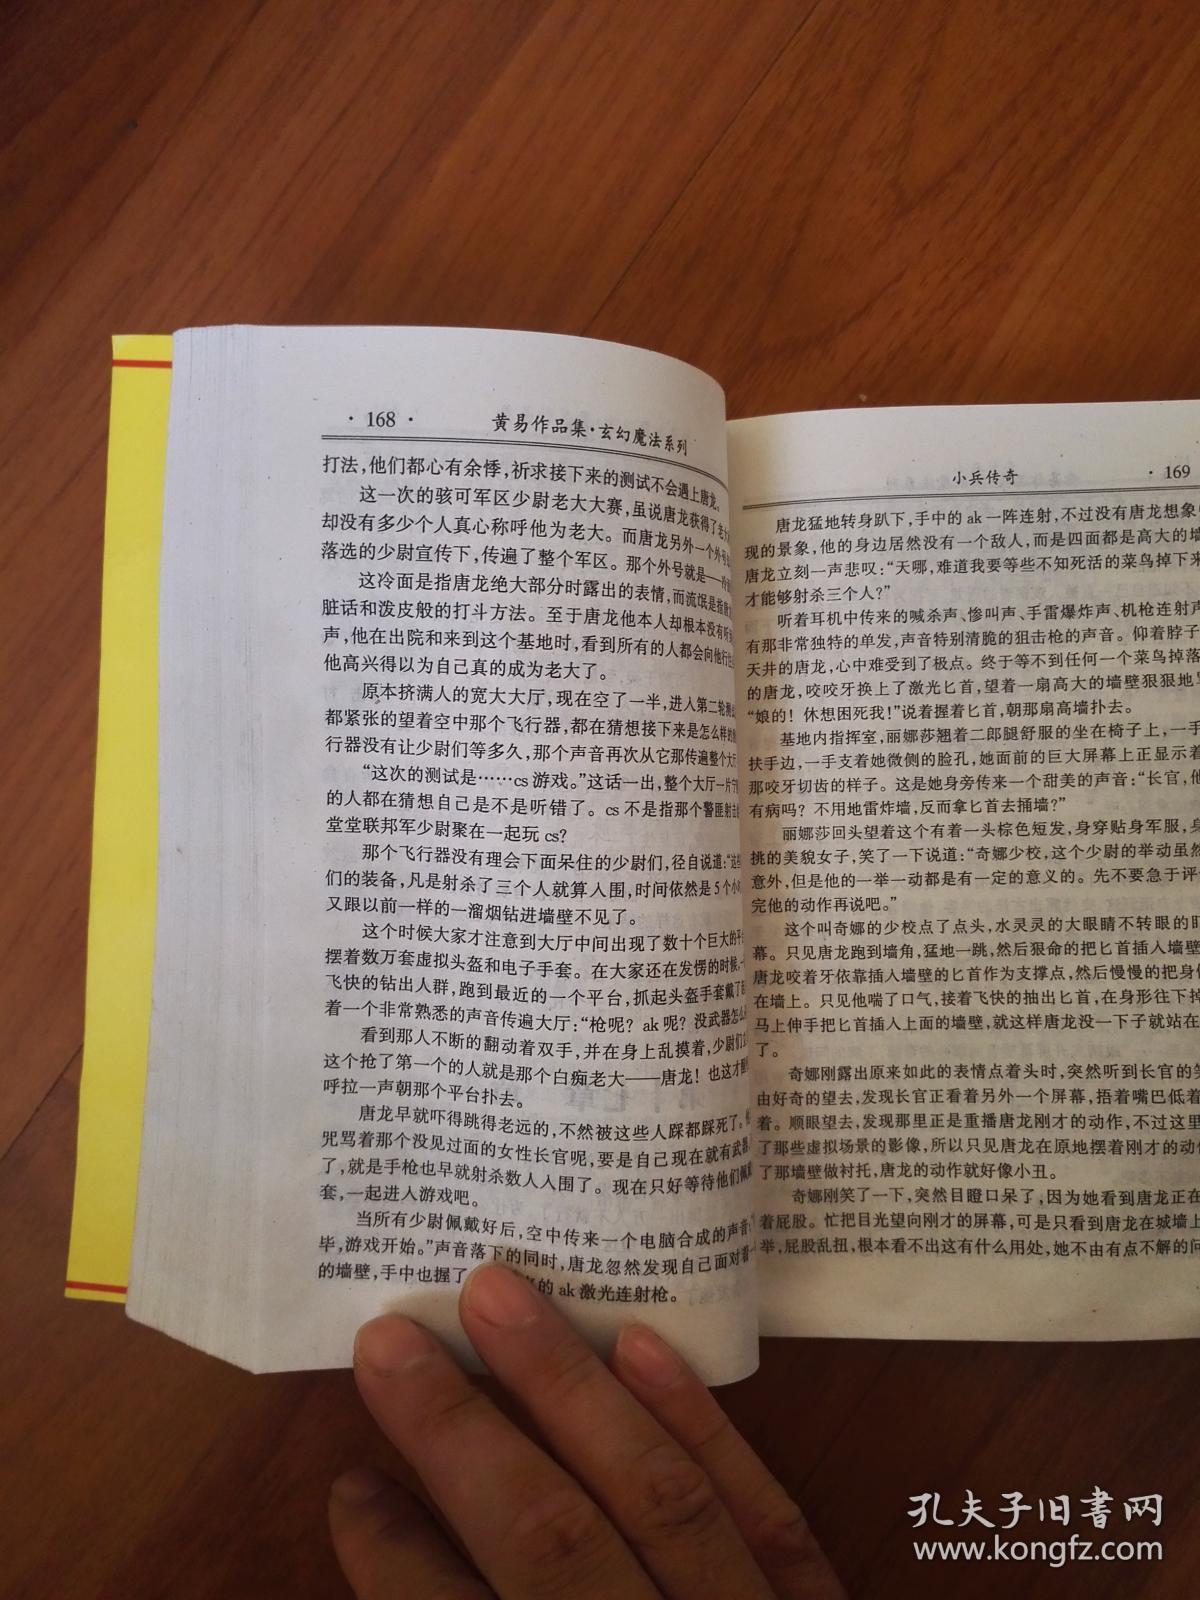 · 168 ·
黄易作品集·玄幻魔法系列
打法，他们都心有余悸，祈求接下来的测试不会遇上唐龙。
这一次的骇可军区少尉老大大赛，虽说唐龙获得了老大
却没有多少个人真心称呼他为老大。而唐龙另外一个外号
落选的少尉宣传下，传遍了整个军区。那个外号就是——
这冷面是指唐龙绝大部分时露出的表情，而流氓是指唐
脏话和泼皮般的打斗方法。至于唐龙他本人却根本没有听
声，他在出院和来到这个基地时，看到所有的人都会向他行
他高兴得以为自己真的成为老大了。
原本挤满人的宽大大厅，现在空了一半，进入第二轮测
都紧张的望着空中那个飞行器，都在猜想接下来是怎么样的
行器没有让少尉们等多久，那个声音再次从它那传遍整个大厅
“这次的测试是……cs游戏。”这话一出，整个大厅一片
的人都在猜想自己是不是听错了。cs不是指那个警匪射击
堂堂联邦军少尉聚在一起玩cs？
那个飞行器没有理会下面呆住的少尉们，径自说道：“这
们的装备，凡是射杀了三个人就算入围，时间依然是5个小
又跟以前一样的一溜烟钻进墙壁不见了。
这个时候大家才注意到大厅中间出现了数十个巨大的平
摆着数万套虚拟头盔和电子手套。在大家还在发愣的时候，
飞快的钻出人群，跑到最近的一个平台，抓起头盔手套戴了
着一个非常熟悉的声音传遍大厅：“枪呢？ak呢？没武器怎么
看到那人不断的翻动着双手，并在身上乱摸着，少尉们
这个抢了第一个的人就是那个白痴老大——唐龙！也这才
呼拉一声朝那个平台扑去。
唐龙早就吓得跳得老远的，不然被这些人踩都踩死了。
咒骂着那个没见过面的女性长官呢，要是自己现在就有武器
了，就是手枪也早就射杀数人入围了。现在只好等待他们佩戴
套，一起进入游戏吧。
当所有少尉佩戴好后，空中传来一个电脑合成的声音：“
毕，游戏开始。”声音落下的同时，唐龙忽然发现自己面对着
的墙壁，手中也握了 的ak激光连射枪。
小兵传奇
· 169
唐龙猛地转身趴下，手中的ak一阵连射，不过没有唐龙想象
现的景象，他的身边居然没有一个敌人，而是四面都是高大的墙
唐龙立刻一声悲叹：“天哪，难道我要等些不知死活的菜鸟掉下来
才能够射杀三个人？”
听着耳机中传来的喊杀声、惨叫声、手雷爆炸声、机枪连射声
有那非常独特的单发，声音特别清脆的狙击枪的声音。仰着脖子
天井的唐龙，心中难受到了极点。终于等不到任何一个菜鸟掉落
的唐龙，咬咬牙换上了激光匕首，望着一扇高大的墙壁狠狠地
“娘的！休想困死我！”说着握着匕首，朝那扇高墙扑去。
基地内指挥室，丽娜莎翘着二郎腿舒服的坐在椅子上，一手
扶手边，一手支着她微侧的脸孔，她面前的巨大屏幕上正显示着
那咬牙切齿的样子。这是她身旁传来一个甜美的声音：“长官，他
有病吗？不用地雷炸墙，反而拿匕首去捅墙？”
丽娜莎回头望着这个有着一头棕色短发，身穿贴身军服，身
挑的美貌女子，笑了一下说道：“奇娜少校，这个少尉的举动虽然
意外，但是他的一举一动都是有一定的意义的。先不要急于评
完他的动作再说吧。”
这个叫奇娜的少校点了点头，水灵灵的大眼睛不转眼的盯
幕。只见唐龙跑到墙角，猛地一跳，然后狠命的把匕首插入墙壁
唐龙咬着牙依靠插入墙壁的匕首作为支撑点，然后慢慢的把身
在墙上。只见他喘了口气，接着飞快的抽出匕首，在身形往下掉
马上伸手把匕首插入上面的墙壁，就这样唐龙没一下子就站在
了。
奇娜刚露出原来如此的表情点着头时，突然听到长官的笑
由好奇的望去，发现长官正看着另外一个屏幕，捂着嘴巴低着
着。顺眼望去，发现那里正是重播唐龙刚才的动作，不过这里
了那些虚拟场景的影像，所以只见唐龙在原地摆着刚才的动
了那墙壁做衬托，唐龙的动作就好像小丑。
奇娜刚笑了一下，突然目瞪口呆了，因为她看到唐龙正在
着屁股。忙把目光望向刚才的屏幕，可是只看到唐龙在城墙上
举，屁股乱扭，根本看不出这有什么用处，她不由有点不解的问
孔夫子旧书网
www.kongfz.com